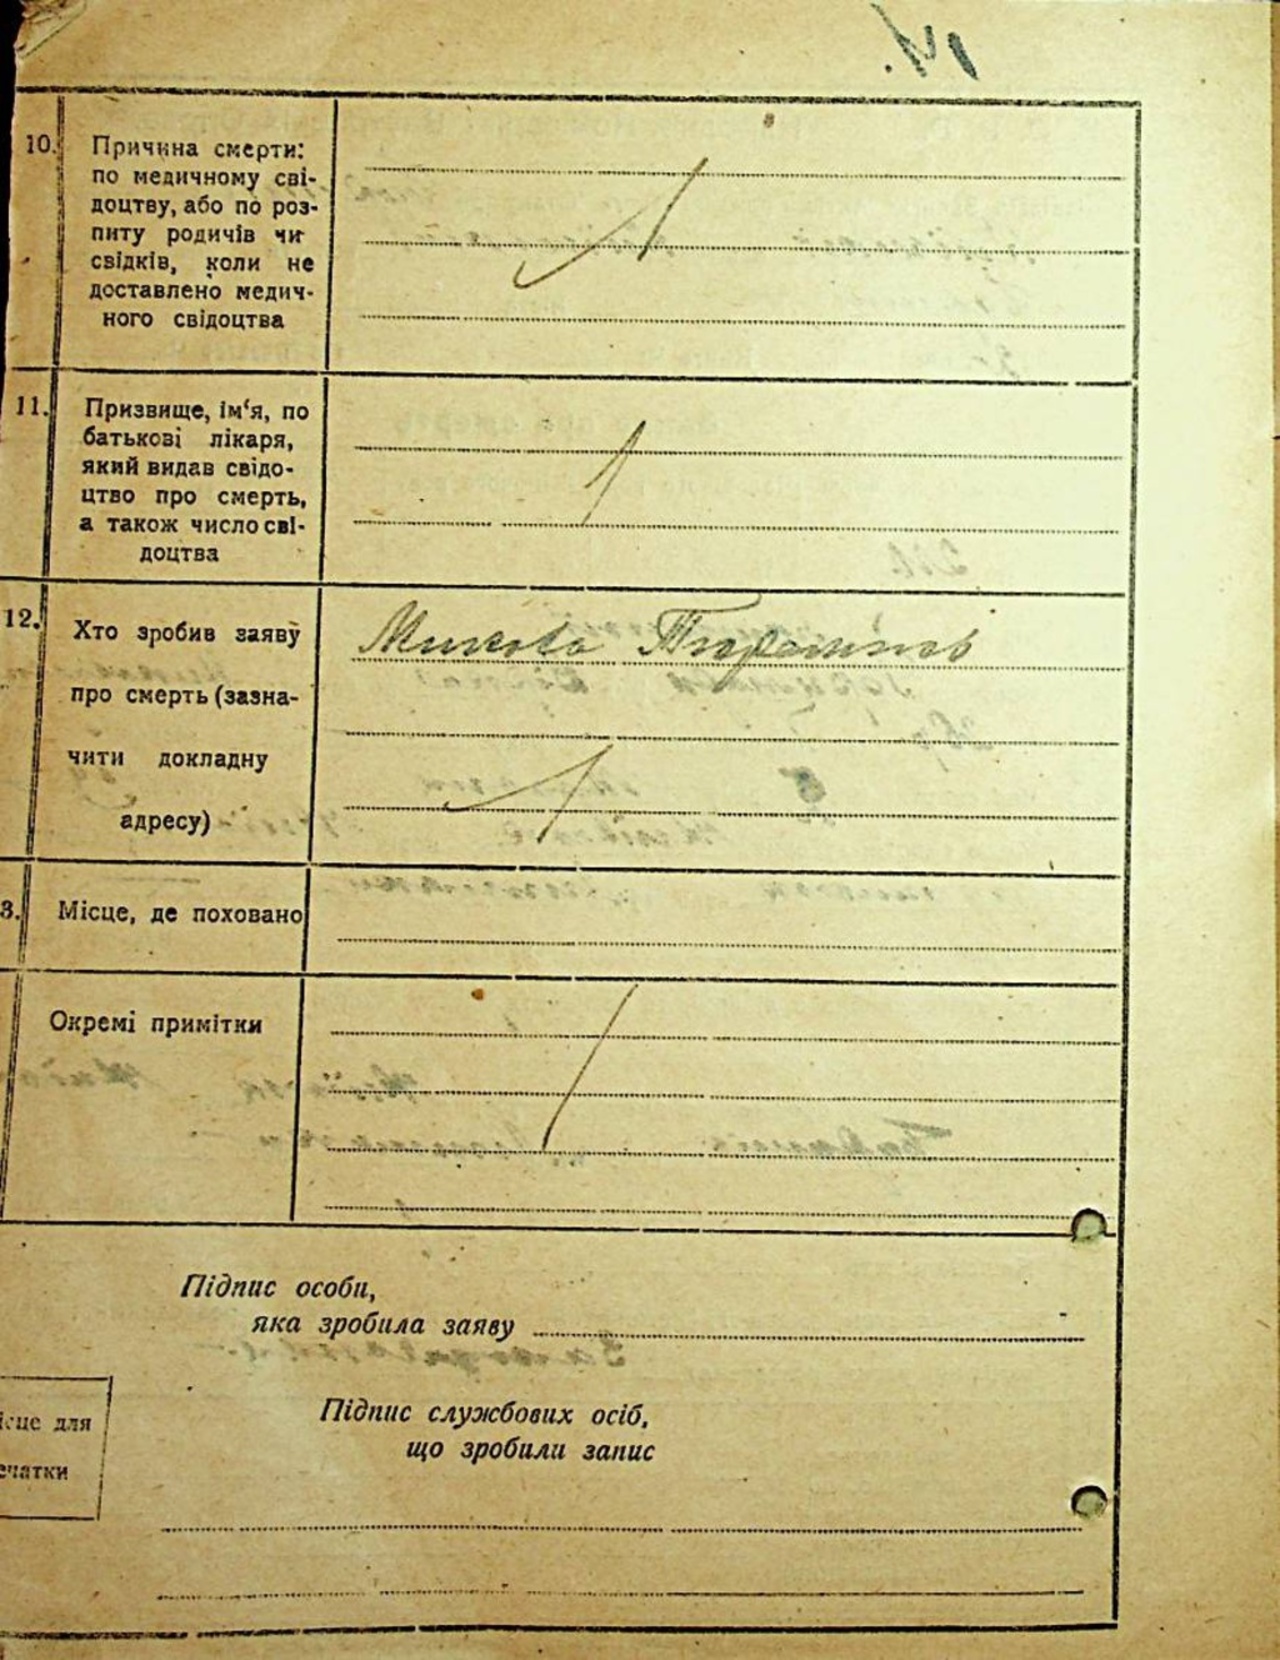 10. Причина смерти:
по медичному сві-
доцтву, або по роз-
питу родичів чи
свідків, коли не
доставлено медич-
ного свідоцтва
11. Призвище, ім‘я, по
батькові лікаря,
який видав свідо-
цтво про смерть,
а також число сві-
доцтва
12. Хто зробив заяву
про смерть (зазна-
чити докладну
адресу)
Микола
3. Місце, де поховано
Окремі примітки
Підпис особи,
яка зробила заяву
ісце для
ечатки
Підпис службових осіб,
що зробили запис